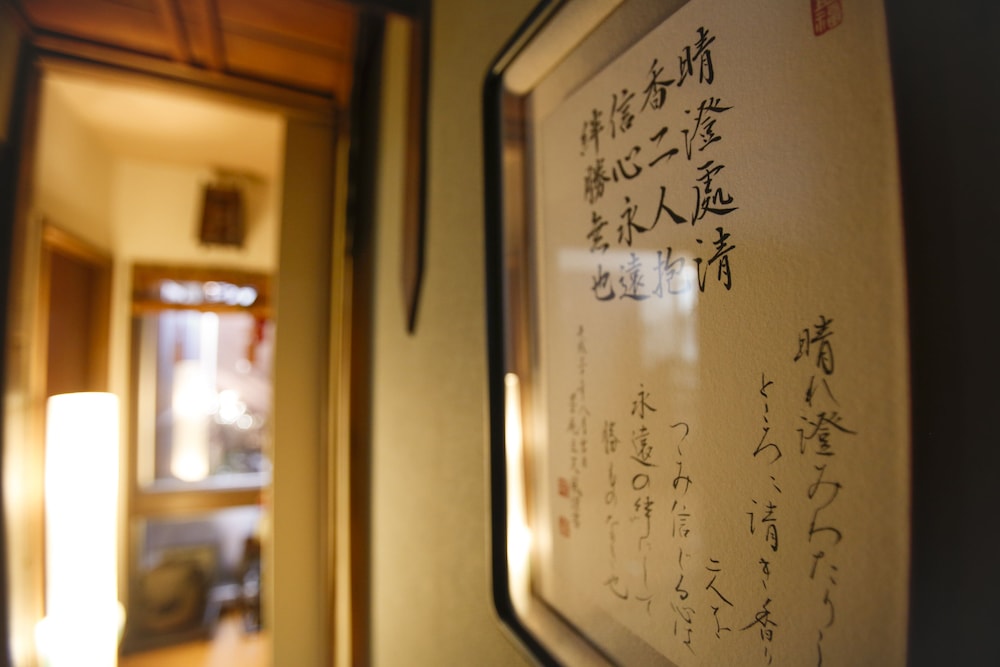 晴澄處請
香二人抱
信心永遠
絆勝無也
晴れ澄みわたりし
ところに請き香り
二人を
つつみ信じる心は
永遠の絆にして
勝るものなき也